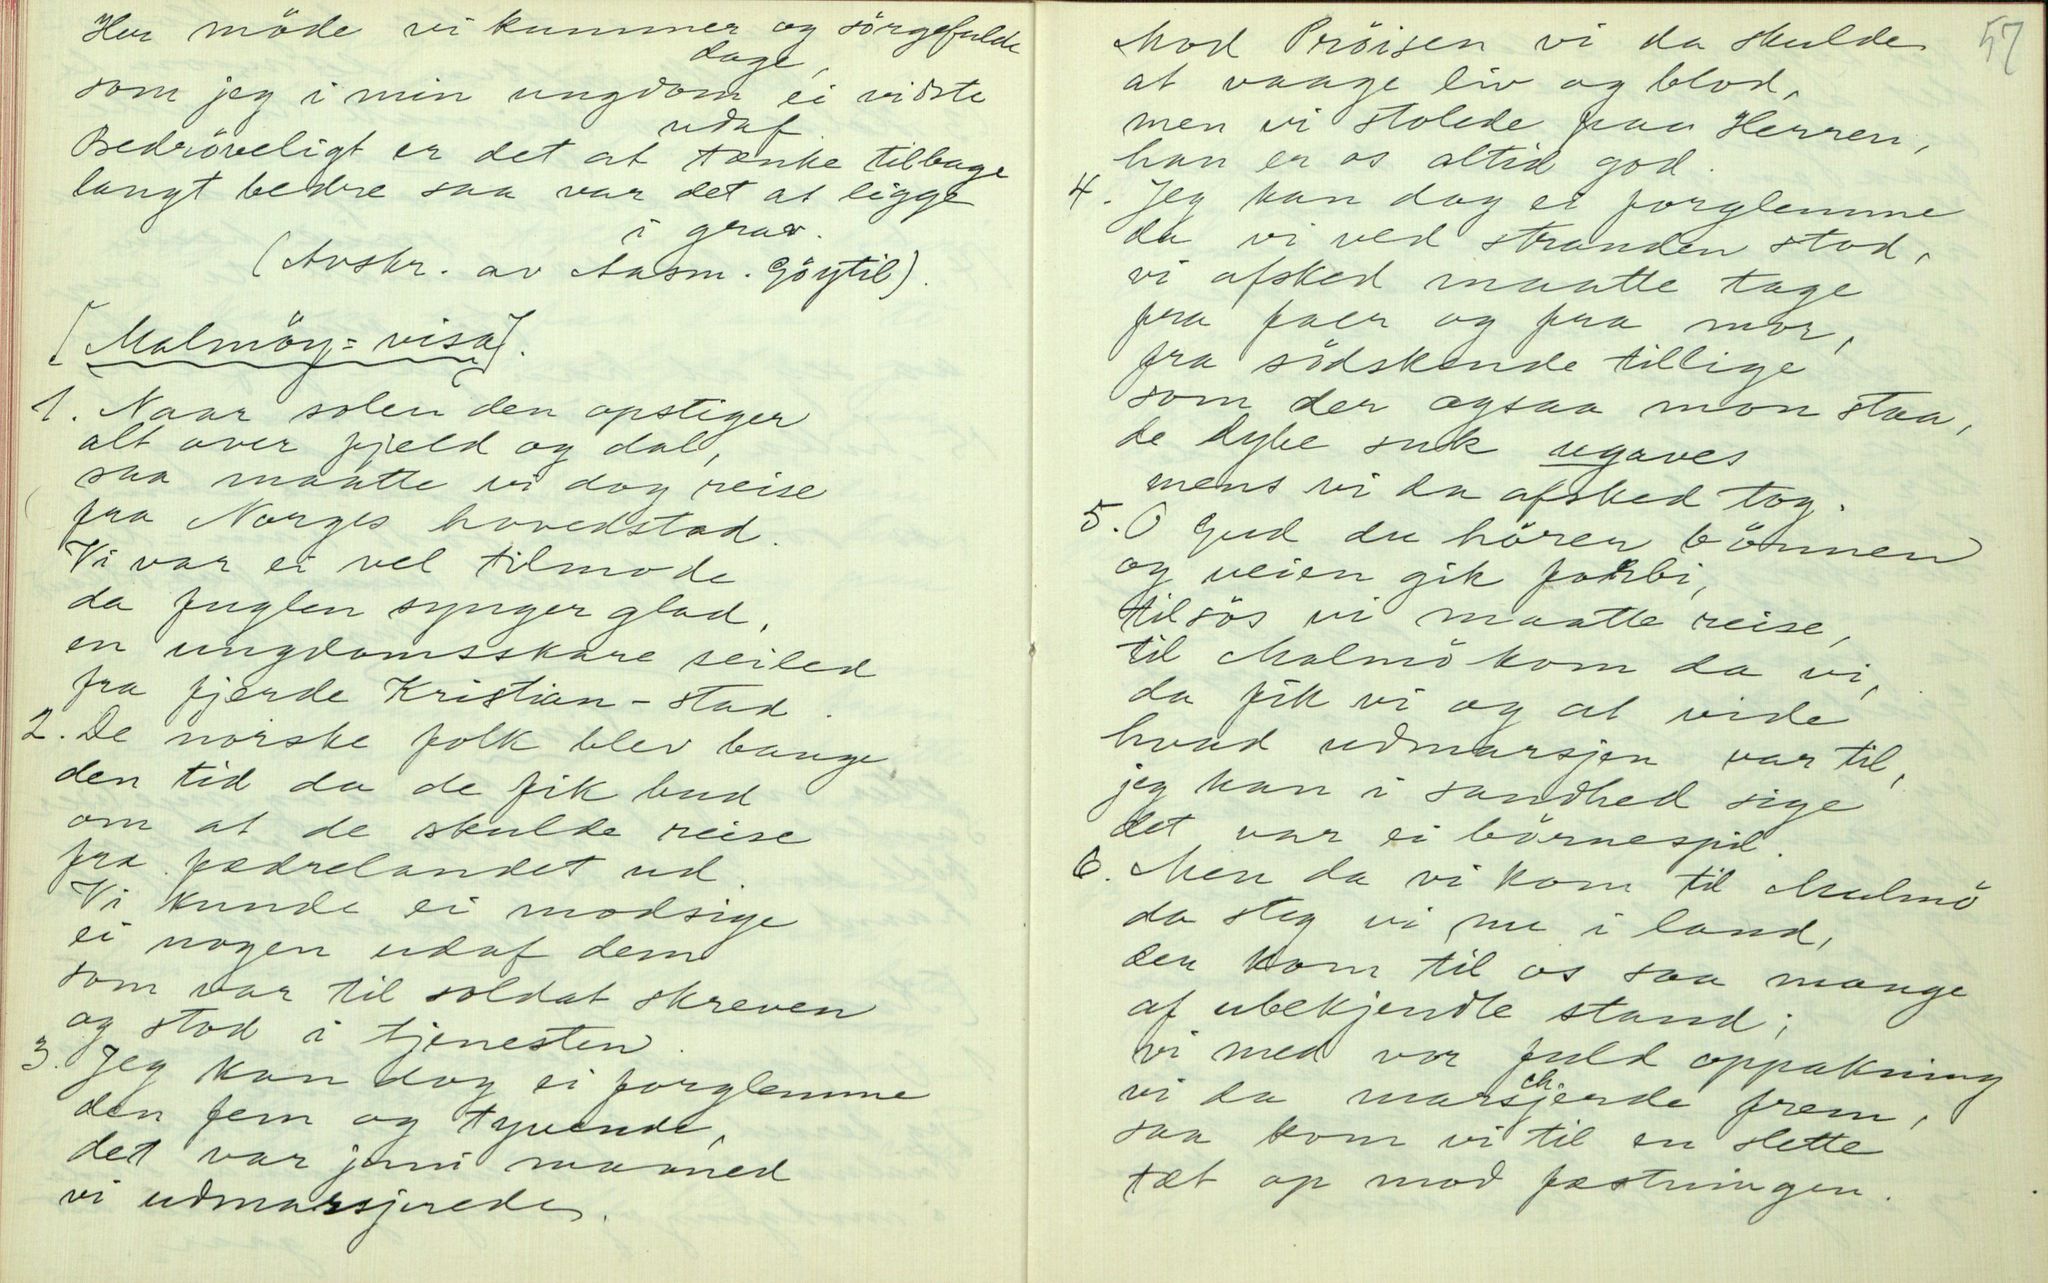 Her möde vi kummer og sörgefulde
dage,
som jeg i min ungdom ei vidste
udaf.
Bedröveligt er det at tænke tilbage
langt bedre saa var det at ligge
i grav.
(Avskr. av Aasm. Göytil).
[Malmöy=visa].
1. Naar solen den opstiger
alt over fjeld og dal,
saa maatte vi dog reise
fra Norges hovedstad.
Vi var ei vel tilmode
da fuglen synger glad,
en ungdomsskare seiled
fra fjerde Kristian-stad.
2. De norske folk blev bange
den tid da de fik bud
om at de skulde reise
fra fædrelandet ud.
Vi kunde ei modsige
ei nogen udaf dem
som var til soldat skreven
og stod i tjenesten.
3. Jeg kan dog ei forglemme
den fem og tyvende,
det var juni maaned
vi udmarsjerede.
57
Mod Pröisen vi da skulde
at vaage liv og blod,
men vi stolede paa Herren,
han er os altid god.
4. Jeg kan dog ei forglemme
da vi ved stranden stod,
vi afsked maatte tage
fra faer og fra mor,
fra södskende tillige
som der ogsaa mon staa,
de dybe suk ugaves
mens vi da afsked tog.
5. O Gud du hörer bönnen
og veien gik forbi,
tilsös vi maatte reise,
til Malmö kom da vi,
da fik vi og at vide
hvad udmarsjen var til,
jeg kan i sandhed sige
det var ei börnespil.
6. Men da vi kom til Malmö
da steg vi nu i land,
der kom til os saa mange
af ubekjendte stand;
vi med vor fuld oppakning
ch
vi da marsjerde frem,
saa kom vi til en slette
tæt op mod fæstningen.